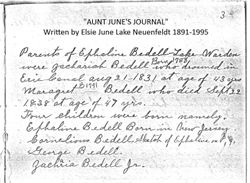 32
"AUNT JUNE'S JOURNAL"
Written by Elsie June Lake Neuenfeldt 1891-1995
Parents of Ephaline Bedell Lake Warden
were Zachariah Bedell Born 1788 who drowned in
Erie Canal aug 21-1831 at age of 43 yrs
Margret B 1791 Bedell who died Sept 22
1838 at age of 47 yrs.
Four children were born namely.
Ephaline Bedell Born in New Jersey
Cornelius Bedell Sketch of Ephaline on P.
George Bedell.
Zachria Bedell Jr.